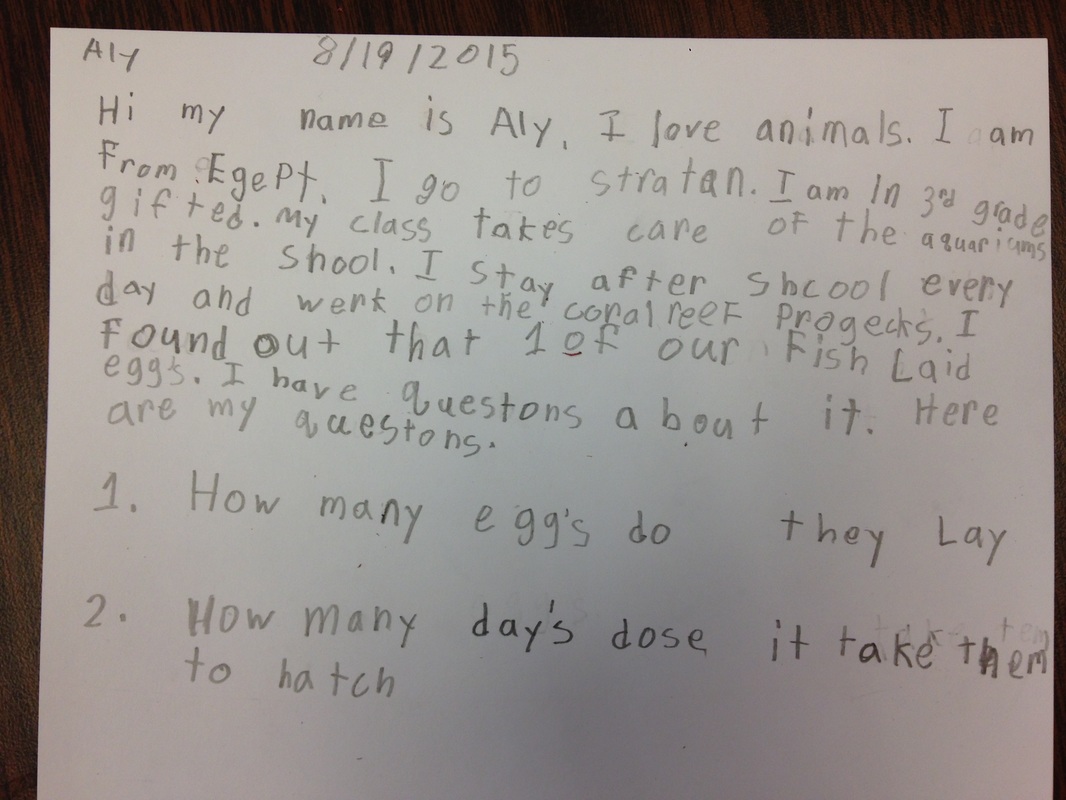 Aly 8/19/2015
Hi my name is Aly. I love animals. I am
From Egept. I go to stratan. I am In 3rd grade
gifted. My class takes care of the aquariums
in the shool. I stay after shcool every
day and werk on the coral reef progecks. I
Found out that 1 of our Fish Laid
eggs. I have questons about it. Here
are my questons.
1. How many egg's do they Lay
2. How many day's dose it take them
to hatch